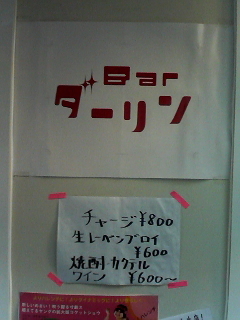 Bar
ダーリン
チャージ¥800
生レーベンブロイ
¥600
焼酎・カクテル
ワイン ¥600〜